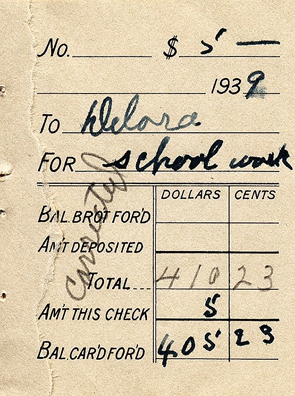 No. $ 5 —
1939
To Delora
For school work
DOLLARS CENTS
BAL. BROT FOR'D
AM'T DEPOSITED
TOTAL... 410 23
AM'T THIS CHECK 5
BAL. CAR'D FOR'D 405 23
Corrected